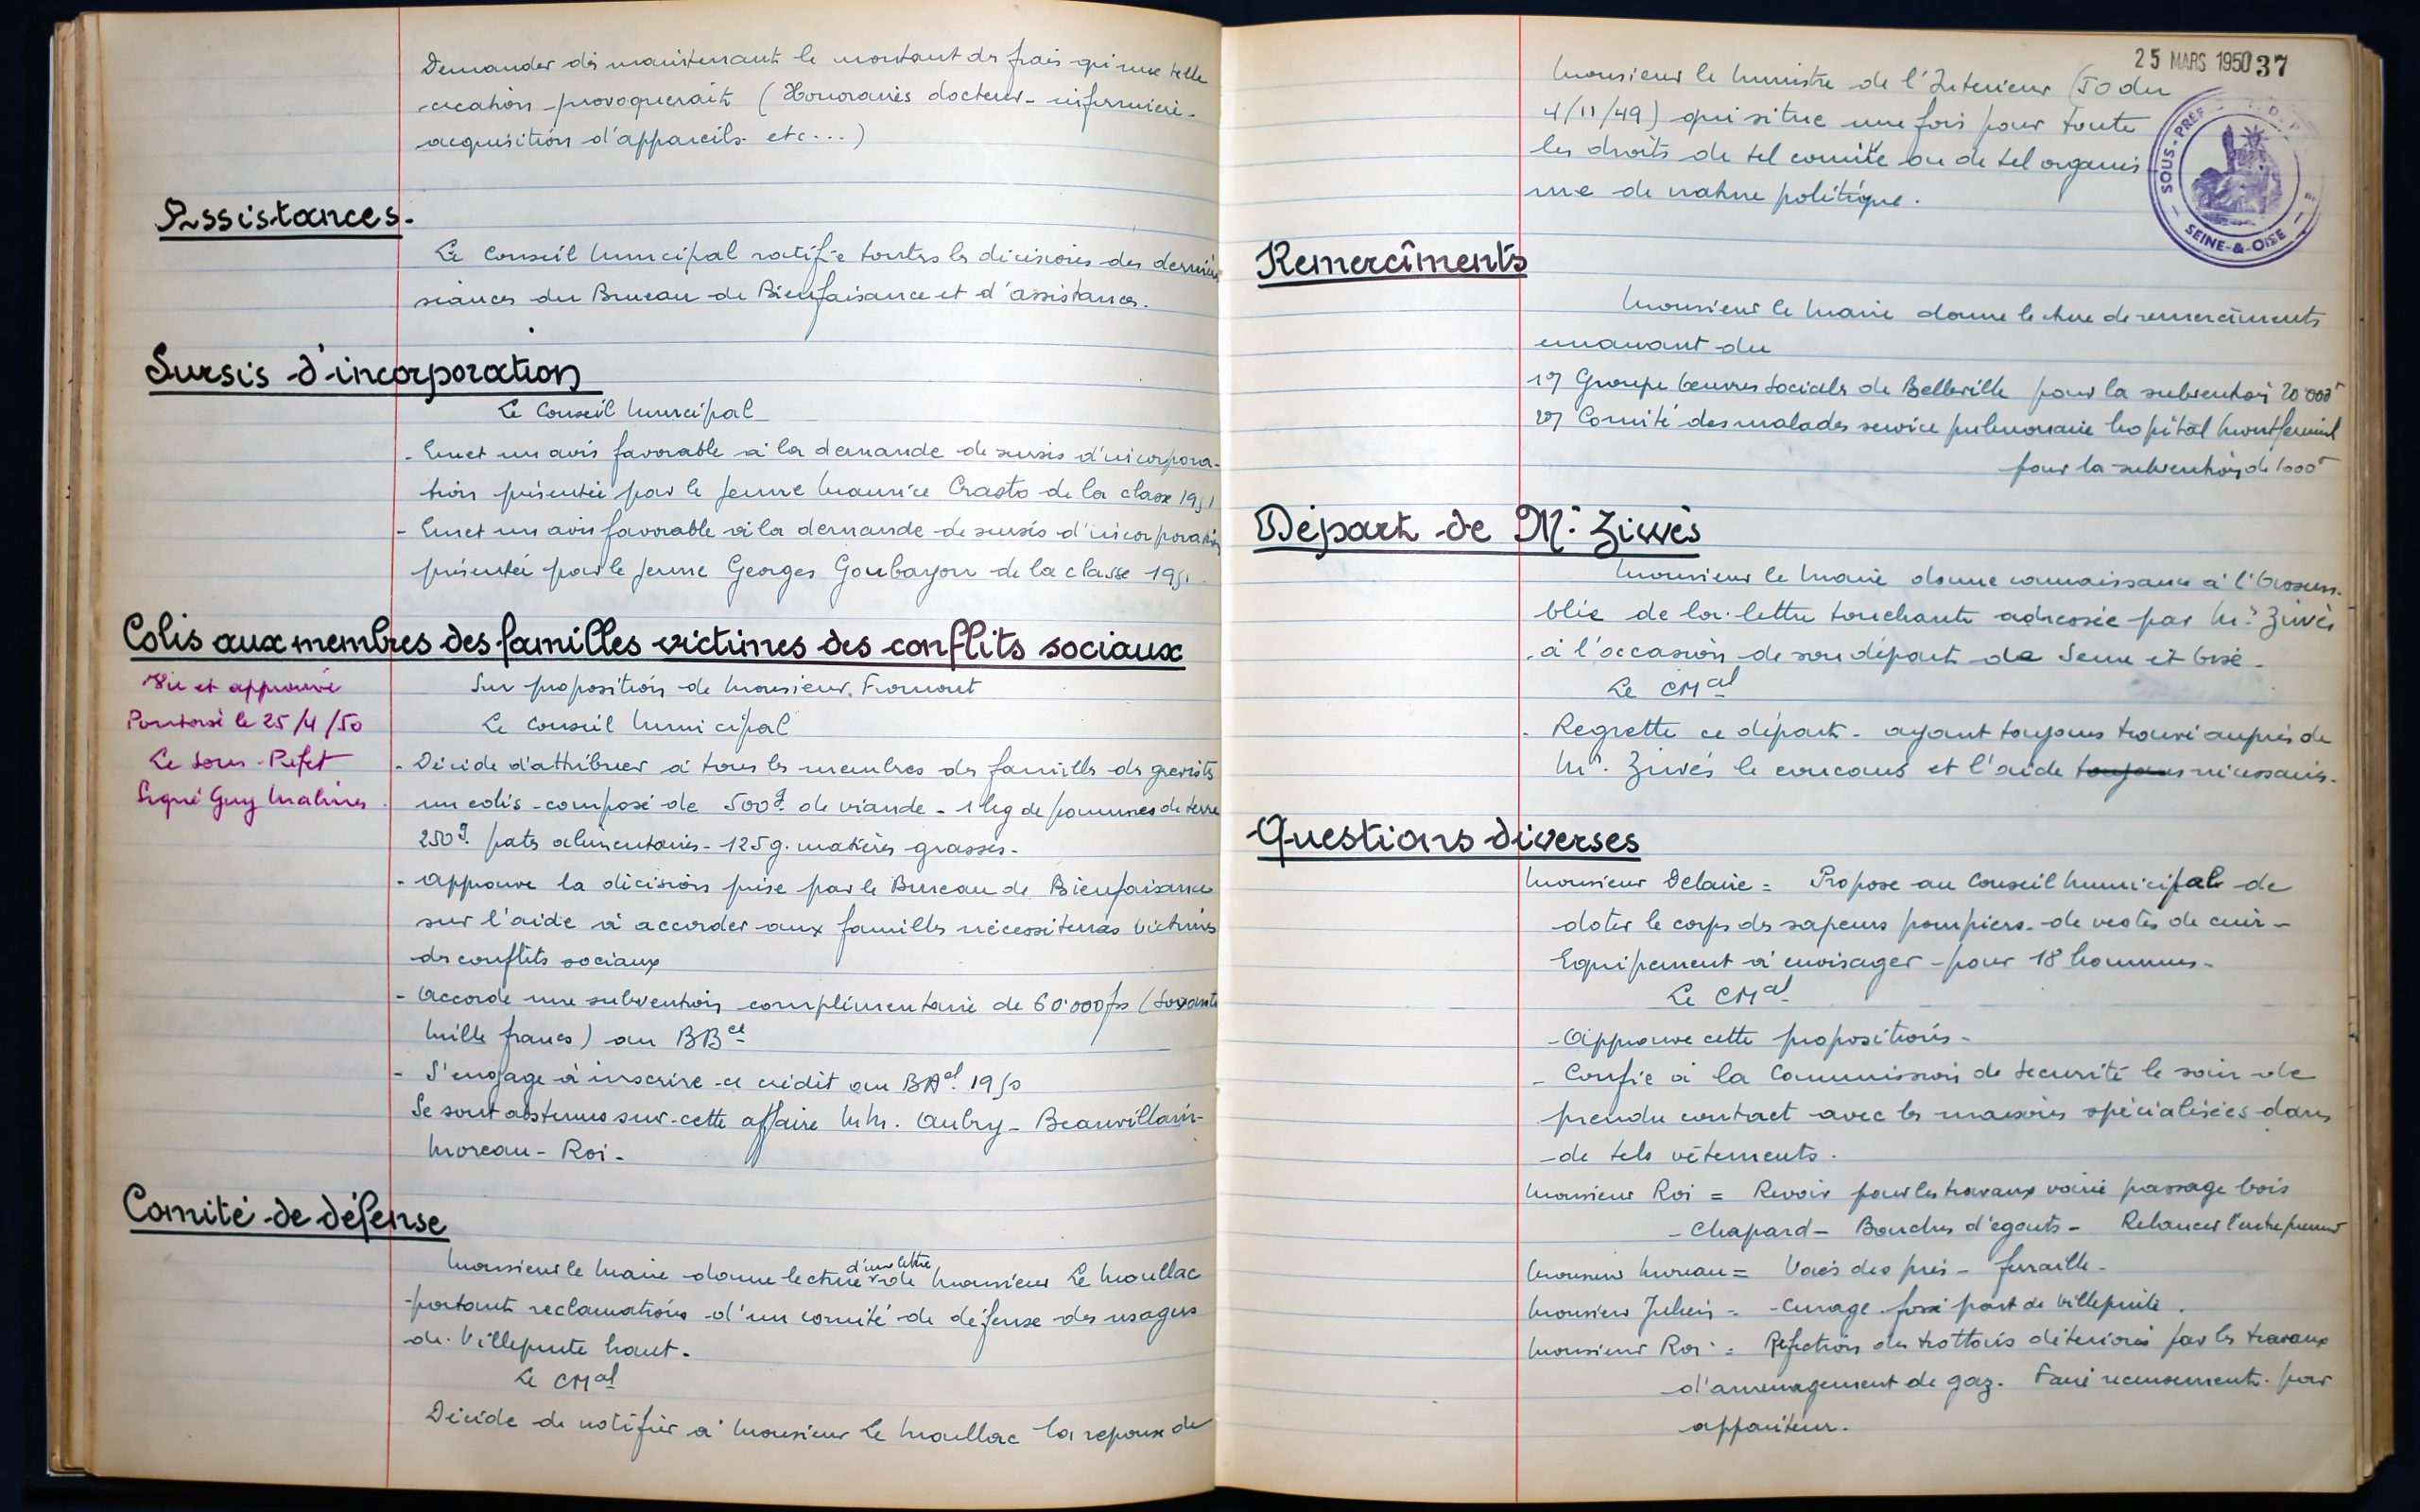 Demander dès maintenant le montant des frais qu'une telle
création provoquerait (Honoraires docteur - infirmière -
acquisition d'appareils. etc...)
Assistances.
Le Conseil Municipal ratifie toutes les décisions des dernières
séances du Bureau de Bienfaisance et d'assistances.
Sursis d'incorporation
Le Conseil Municipal
- Emet un avis favorable à la demande de sursis d'incorpora-
tion présentée par le Jeune Maurice Crasto de la classe 1951
- Emet un avis favorable à la demande de sursis d'incorporation
présentée par le Jeune Georges Goubayon de la classe 1951.
Colis aux membres des familles victimes des conflits sociaux
Vu et approuvé
Pontoise le 25/4/50
Le Sous-Préfet
Signé Guy Malines
Sur proposition de Monsieur Fromont
Le Conseil Municipal
- Décide d'attribuer à tous les membres des familles des grevistes
un colis composé de 500g. de viande - 1 kg de pommes de terre
250g. pates alimentaires - 125g. matières grasses.
- Approuve la décision prise par le Bureau de Bienfaisance
sur l'aide à accorder aux familles nécessiteuses victimes
des conflits sociaux
- Accorde une subvention complémentaire de 60.000 frs (soixante
mille francs) au BBce
- S'engage à inscrire ce crédit au BAel 1950
Se sont abstenus sur cette affaire MM. Aubry - Beauvillain -
Moreau - Roi -
Comité de défense
Monsieur le Maire donne lecture d'une lettre de Monsieur Le Moullac
portant réclamations d'un comité de défense des usagers
de Villepinte haut.
Le CMal
Décide de notifier à Monsieur Le Moullac la reponse de
25 MARS 1950 37
SOUS-PREF
SEINE-&-OISE
Monsieur le Ministre de l'Interieur (JO du
4/11/49) qui situe une fois pour toute
les droits de tel comité ou de tel organis
me de nature politique.
Remerciments
Monsieur le Maire donne lecture de remerciments
emanant du
1°) Groupe Oeuvres Sociales de Belleville pour la subvention 20.000f
2°) Comité des malades service pulmonaire hopital Montfermeil
pour la subvention de 1000f
Départ de Mr. Zivvès
Monsieur le Maire donne connaissance à l'Assem-
blée de la lettre touchante adressée par Mr. Zivvès
à l'occasion de son départ de Seine et Oise.
Le CMal
- Regrette ce départ - ayant toujours trouvé auprès de
Mr. Zivvès le concours et l'aide toujours nécessaires.
Questions diverses
Monsieur Delaire = Propose au Conseil Municipal de
doter le corps des sapeurs pompiers - de vestes de cuir -
Equipement à envisager pour 18 hommes -
Le CMal
- Approuve cette proposition -
- Confie à la Commission de Sécurité le soin de
prendre contact avec les maisons spécialisées dans
de tels vêtements.
Monsieur Roi = Revoir pour les travaux voirie passage bois
- Chapard - Bouches d'egouts - Relancer l'entrepreneur
Monsieur Moreau = Voies des prés - ferraille -
Monsieur Julien = - Curage fossé part de Villepinte.
Monsieur Roi = Réfection des trottoirs déteriorés par les travaux
d'amenagement de gaz. Faire recensement par
appariteur.